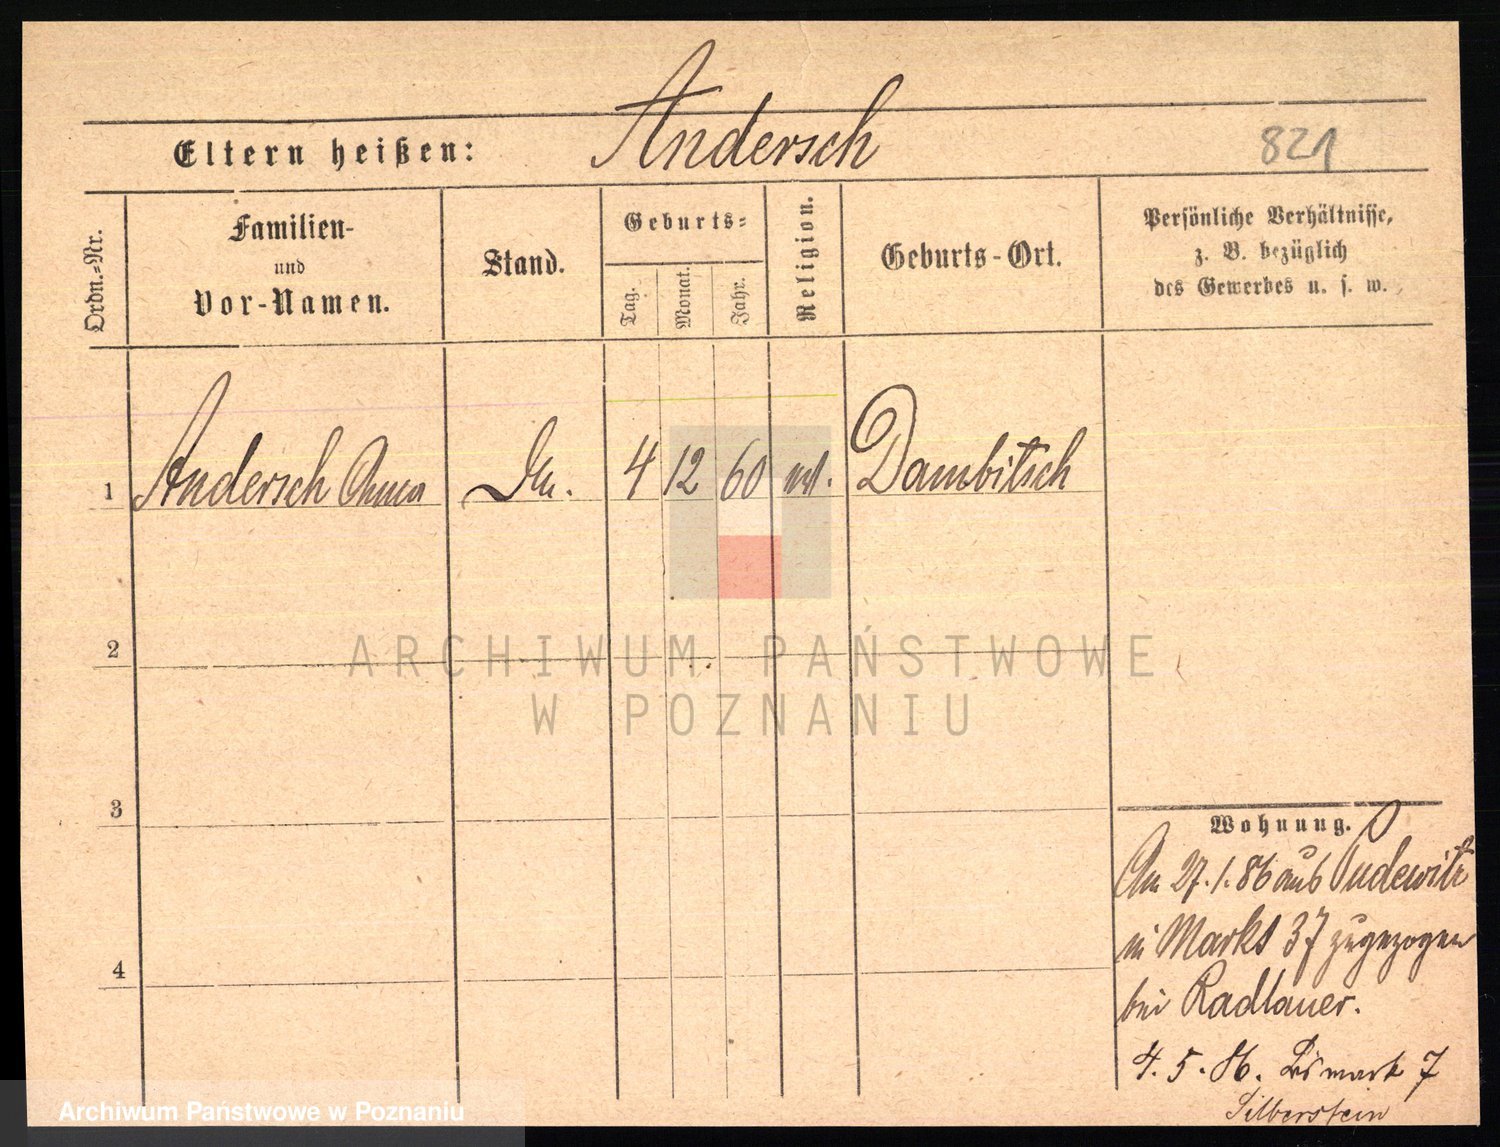 Andersch
Eltern heißen:
821
Ordn.-Nr.
Familien-
und
Vor-Namen.
Stand.
Geburts-
Tag.
Monat.
Jahr.
Religion.
Geburts-Ort.
Persönliche Verhältnisse,
z. B. bezüglich
des Gewerbes u. s. w.
1 Andersch Anna 4 12 60 Dambitsch
2
3
4
ARCHIWUM PAŃSTWOWE
W POZNANIU
Wohnung.
Am 27.1.86 aus Pudewitz
in Markt 37 zugezogen
bei Radlauer.
4.5.86. Bismark 7
Silberstein
Archiwum Państwowe w Poznaniu